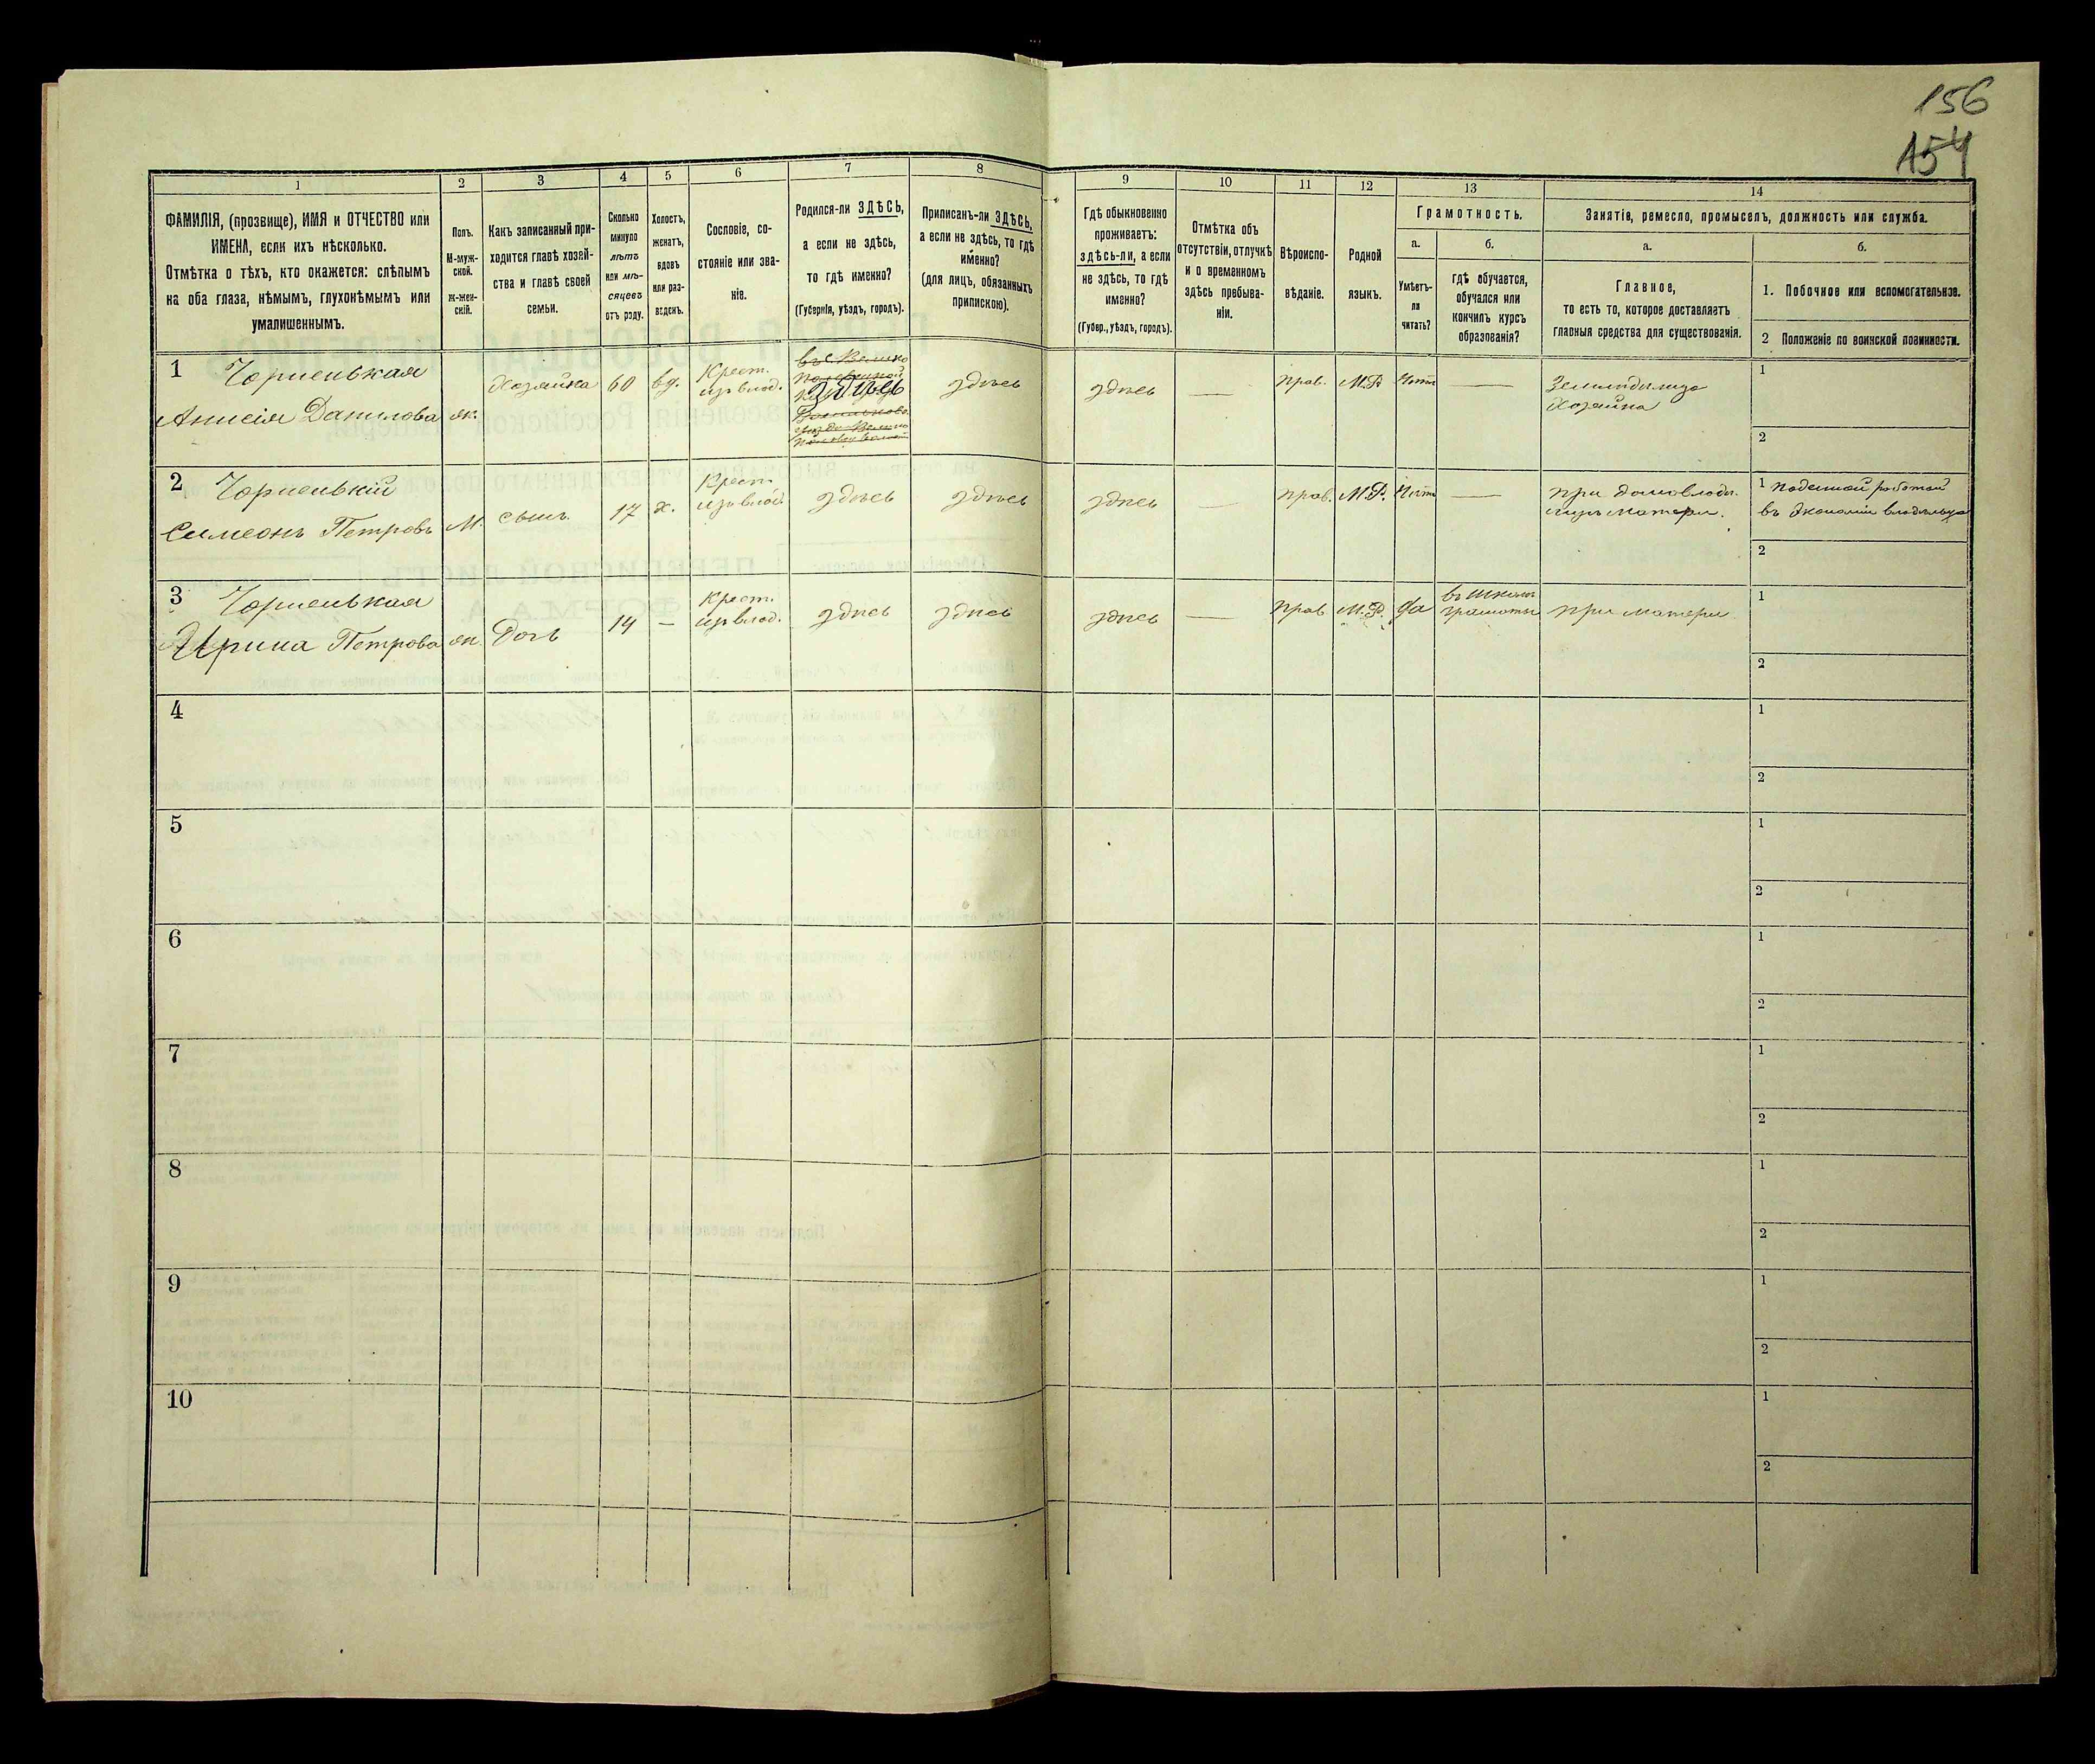 156
154
1
2
3
4
5
6
7
8
9
10
11
12
13
14
ФАМИЛІЯ, (прозвище), ИМЯ и ОТЧЕСТВО или
ИМЕНА, если ихъ нѣсколько.
Отмѣтка о тѣхъ, кто окажется: слѣпымъ
на оба глаза, нѣмымъ, глухонѣмымъ или
умалишеннымъ.
Полъ.
М-муж-
ской.
Ж-жен-
скій.
Какъ записанный при-
ходится главѣ хозяй-
ства и главѣ своей
семьи.
Сколько
минуло
лѣтъ
или мѣ-
сяцевъ
отъ роду.
Холостъ,
женатъ,
вдовъ
или раз-
веденъ.
Сословіе, со-
стояніе или зва-
ніе.
Родился-ли ЗДѢСЬ,
а если не здѣсь,
то гдѣ именно?
(Губернія, уѣздъ, городъ).
Приписанъ-ли ЗДѢСЬ,
а если не здѣсь, то гдѣ
именно?
(для лицъ, обязанныхъ
припискою).
Гдѣ обыкновенно
проживаетъ:
здѣсь-ли, а если
не здѣсь, то гдѣ
именно?
(Губер., уѣздъ, городъ).
Отмѣтка объ
отсутствіи, отлучкѣ
и о временномъ
здѣсь пребыва-
ніи.
Вѣроиспо-
вѣданіе.
Родной
языкъ.
Грамотность.
а.
Умѣетъ-
ли
читать?
б.
гдѣ обучается,
обучался или
кончилъ курсъ
образованія?
Занятіе, ремесло, промыселъ, должность или служба.
а.
Главное,
то есть то, которое доставляетъ
главныя средства для существованія.
б.
1. Побочное или вспомогательное.
2 Положеніе по воинской повинности.
1 Чорненькая
Анисія Данилова
ж.
Хозяйка
60
вд.
Крест.
изъ влад.
здѣсь
здѣсь
здѣсь
—
прав.
М.Р.
Нѣтъ
—
Земледѣлица
Хозяйка
1
2
2 Чорненькій
Симеонъ Петровъ
М.
сынъ
17
х.
Крест.
изъ влад.
здѣсь
здѣсь
здѣсь
—
прав.
М.Р.
Нѣтъ
—
при домовладѣ-
лицѣ матери.
1 Поденной работой
въ Экономіи владѣльца
2
3 Чорненькая
Ирина Петрова
ж.
Дочь
14
—
Крест.
изъ влад.
здѣсь
здѣсь
здѣсь
—
прав.
М.Р.
Да
въ школѣ
грамоты
при матери
1
2
4
1
2
5
1
2
6
1
2
7
1
2
8
1
2
9
1
2
10
1
2